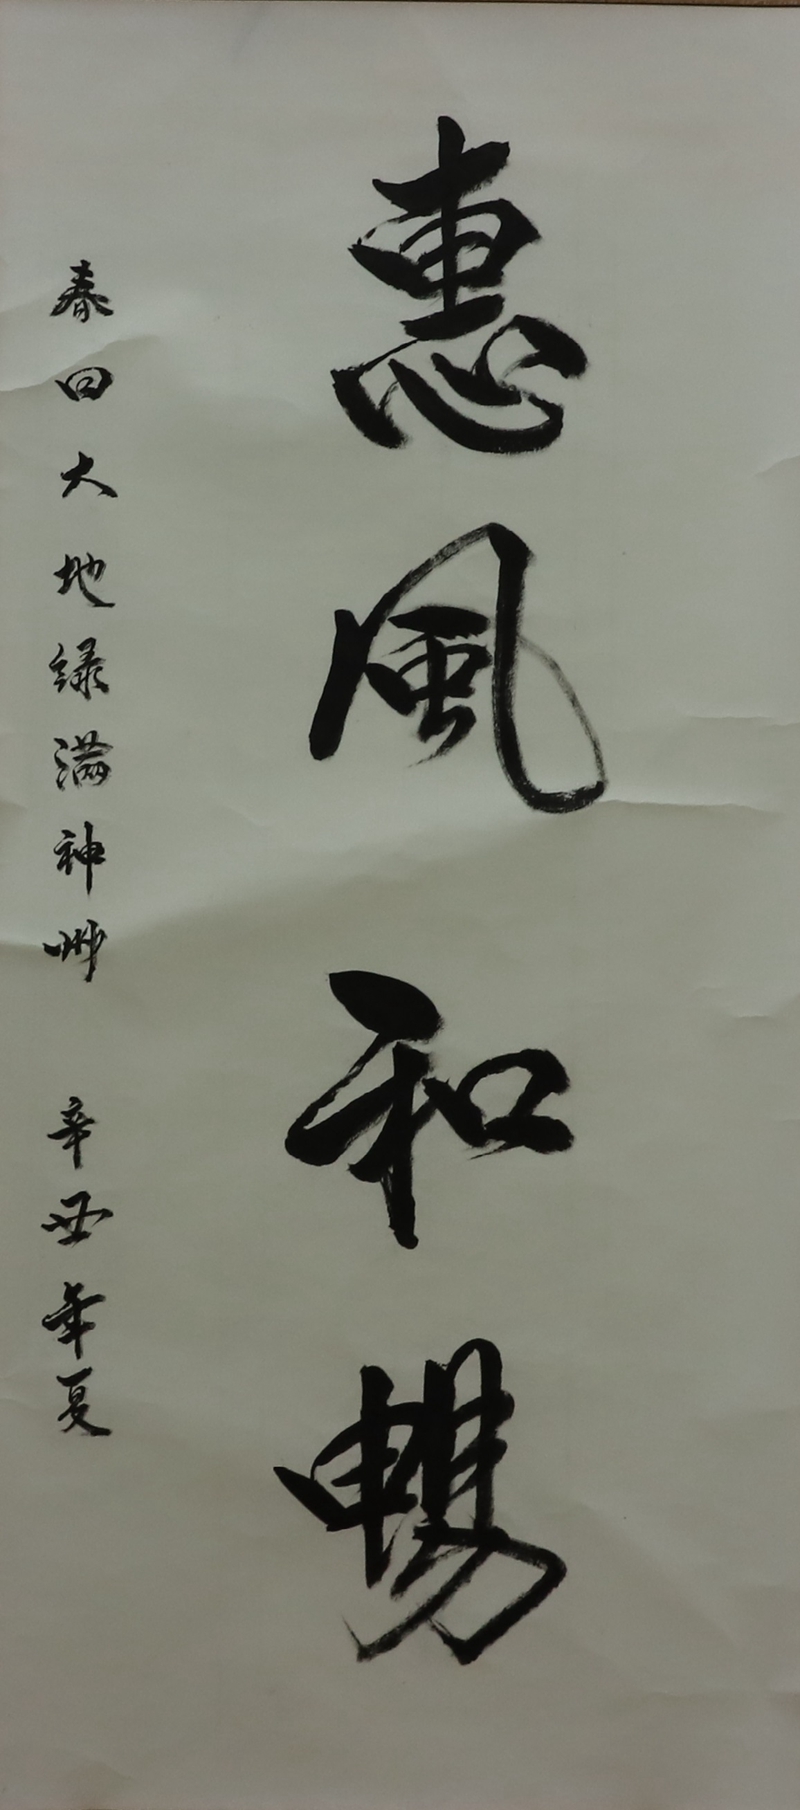 惠風和暢
春回大地綠滿神州 辛丑年夏